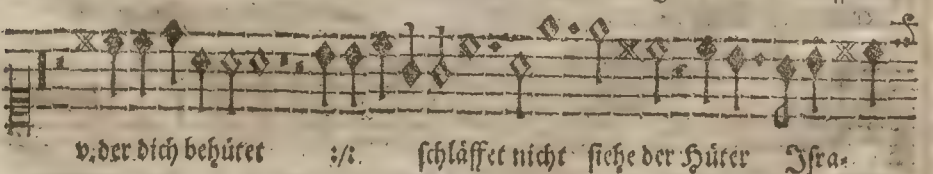 v. der dich behütet :/: schläffet nicht siehe der Hüter Isra-